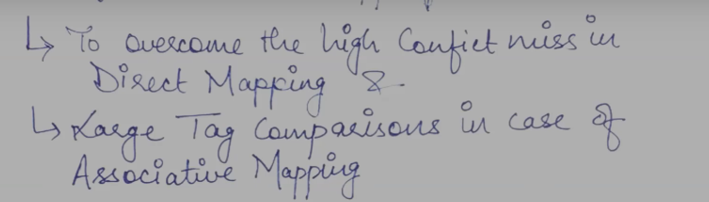 ↳ To overcome the high Confict miss in
Direct Mapping &
↳ Large Tag Comparisons in case of
Associative Mapping